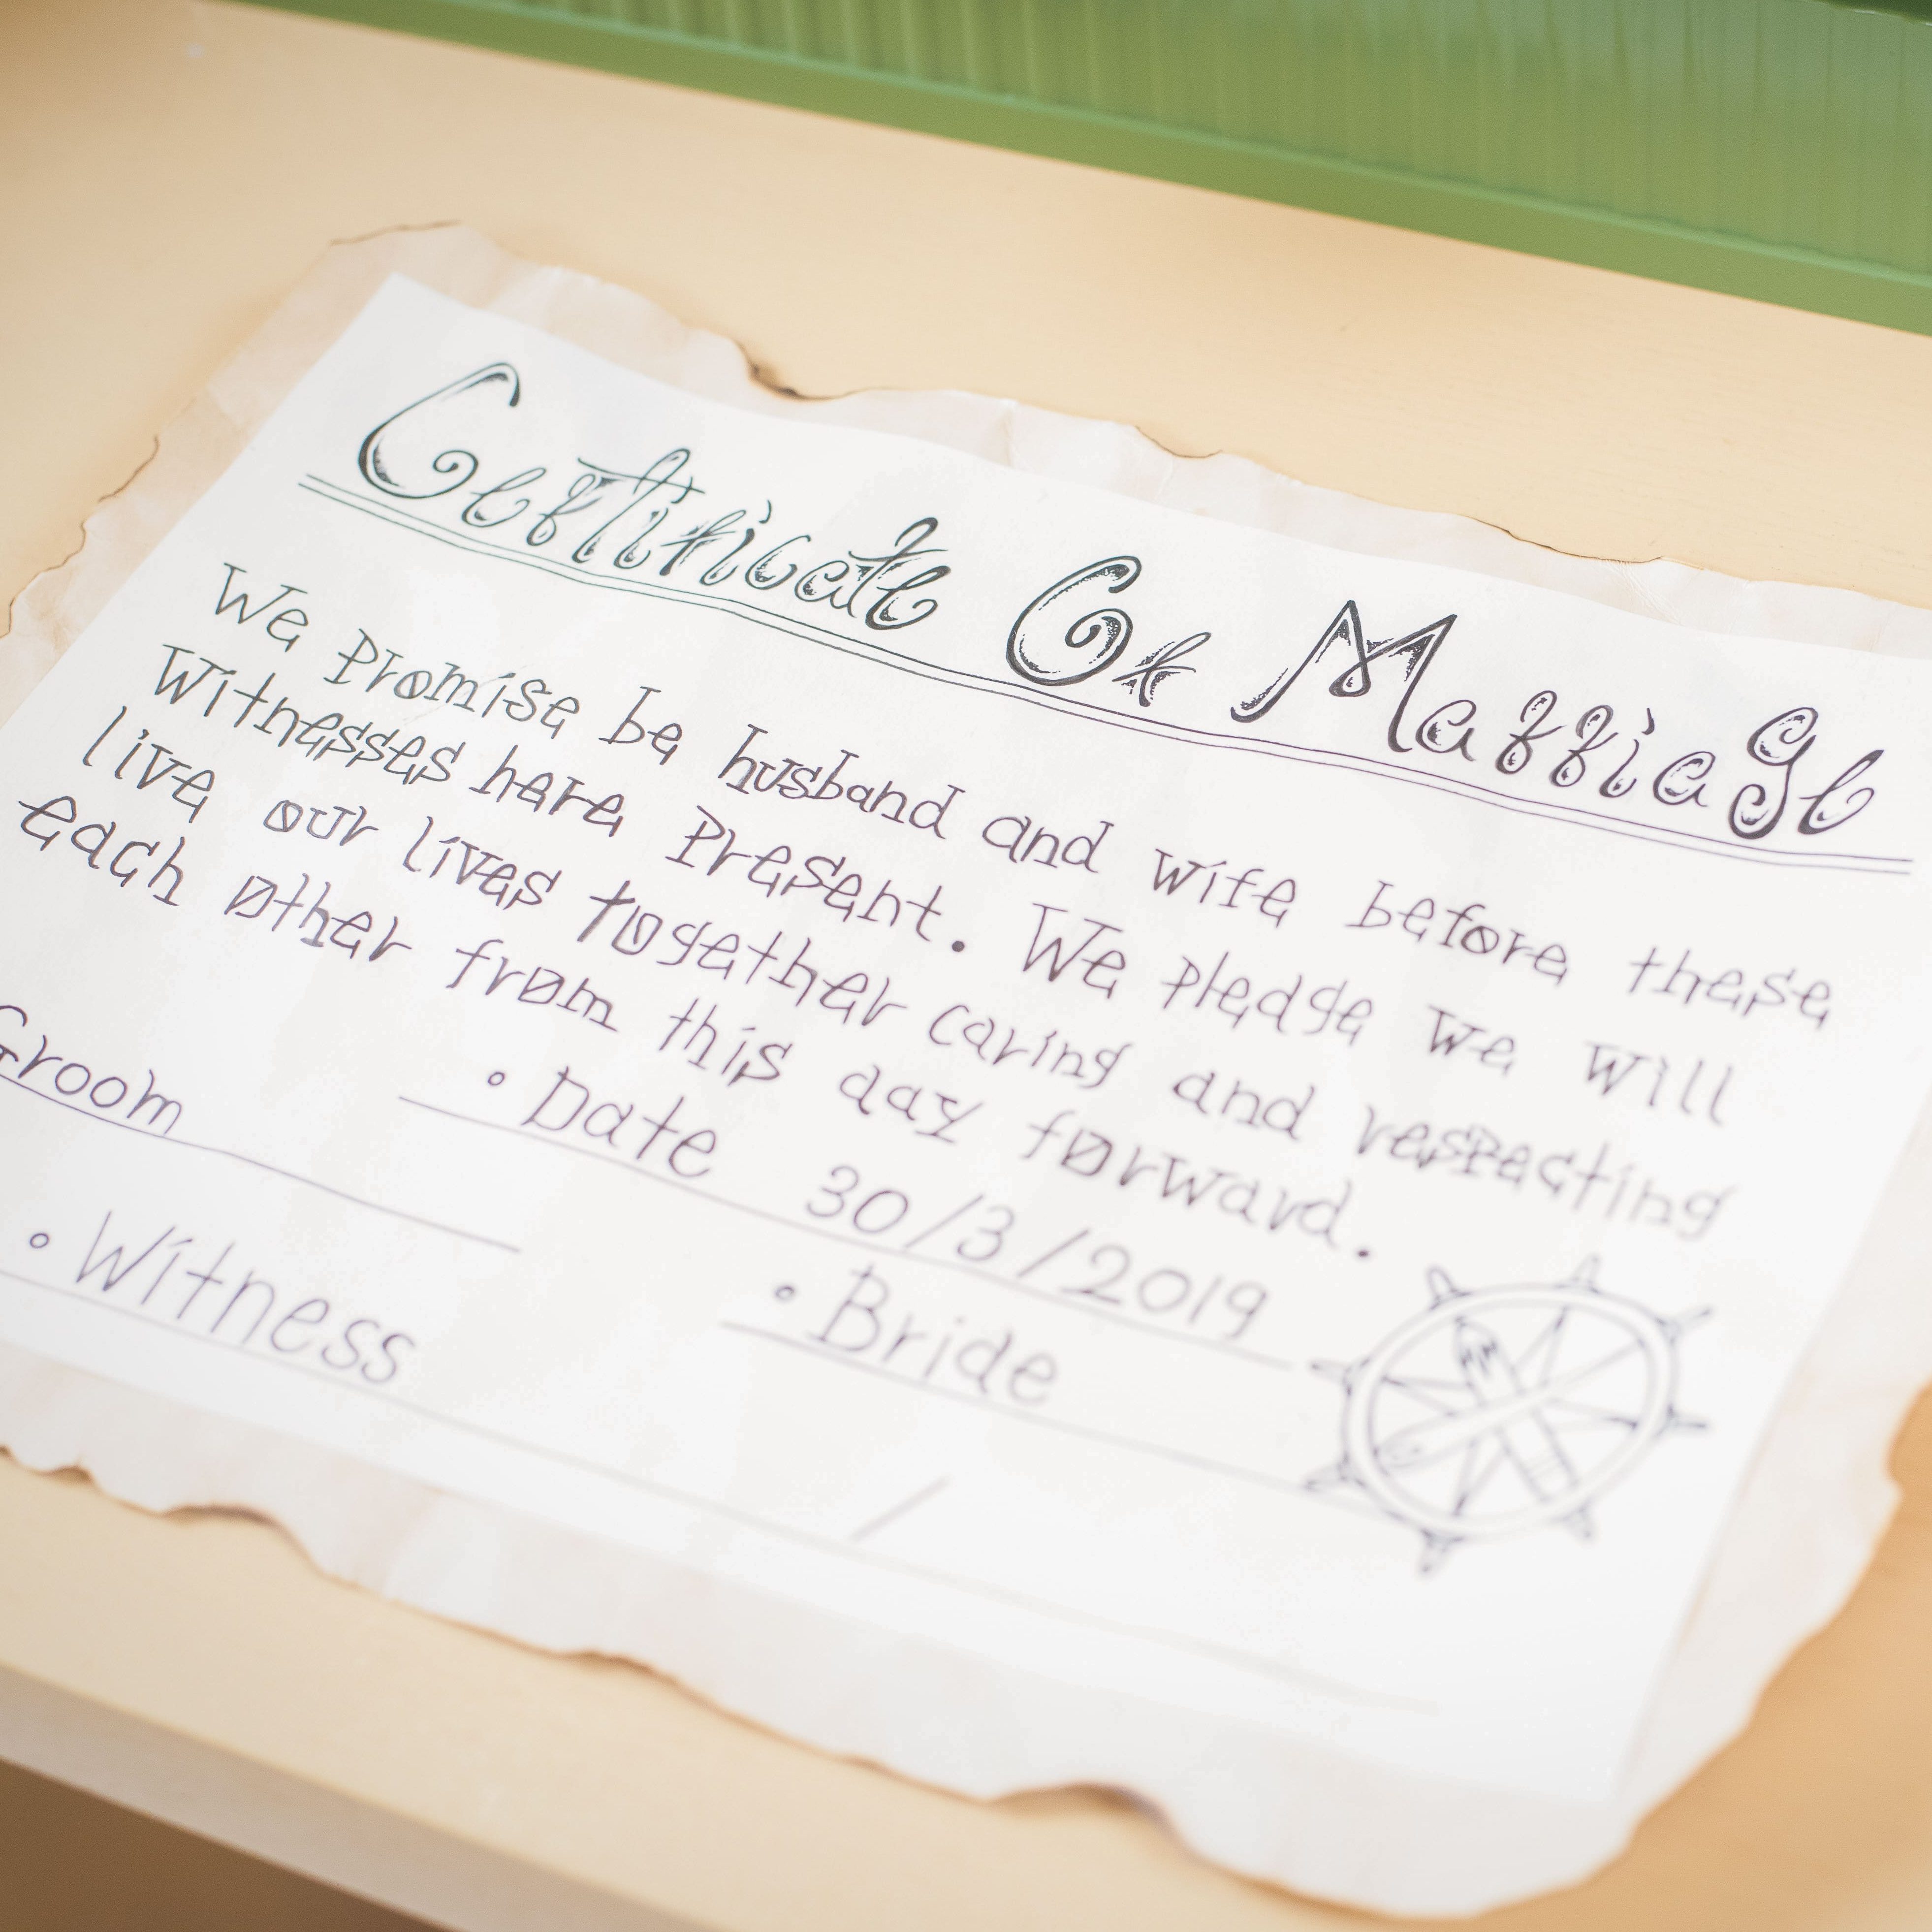 Certificate Of Marriage
We Promise be husband and wife before these
Witnesses here Present. We Pledge we will
live our lives together caring and respecting
each other from this day forward.
• Date 30/3/2019
Groom
• Bride
• Witness
/